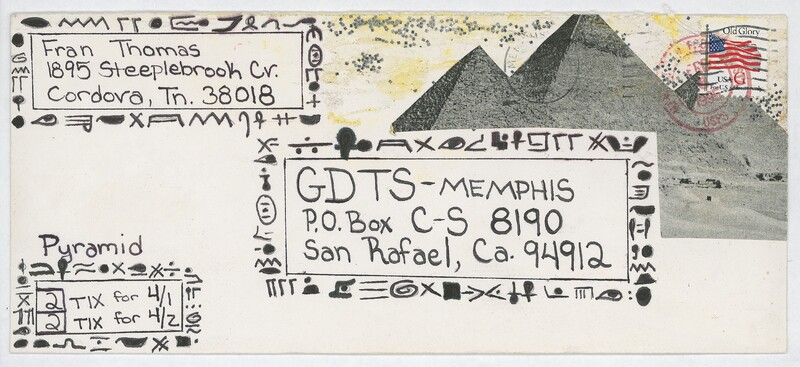 Fran Thomas
1895 Steeplebrook Cv.
Cordova, Tn. 38018
Old Glory
USA
for U.S.
USPS
GDTS-MEMPHIS
P.O. Box C-S 8190
San Rafael, Ca. 94912
Pyramid
2 TIX for 4/1
2 TIX for 4/2